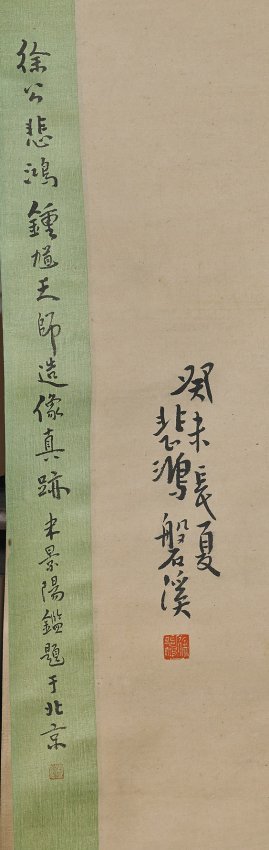 癸未長夏
悲鴻磐溪
徐公悲鴻鍾馗天師造像真跡 米景揚鑑題于北京